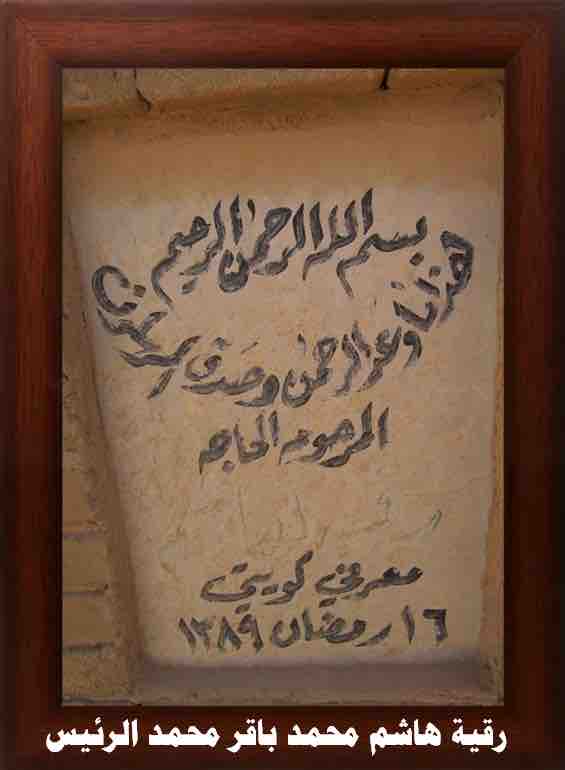 بسم الله الرحمن الرحيم
هذا ما وعد الرحمن وصدق المرسلون
المرحومه الحاجه
معرفي كويتي
١٦ رمضان ١٣٨٩
رقية هاشم محمد باقر محمد الرئيس